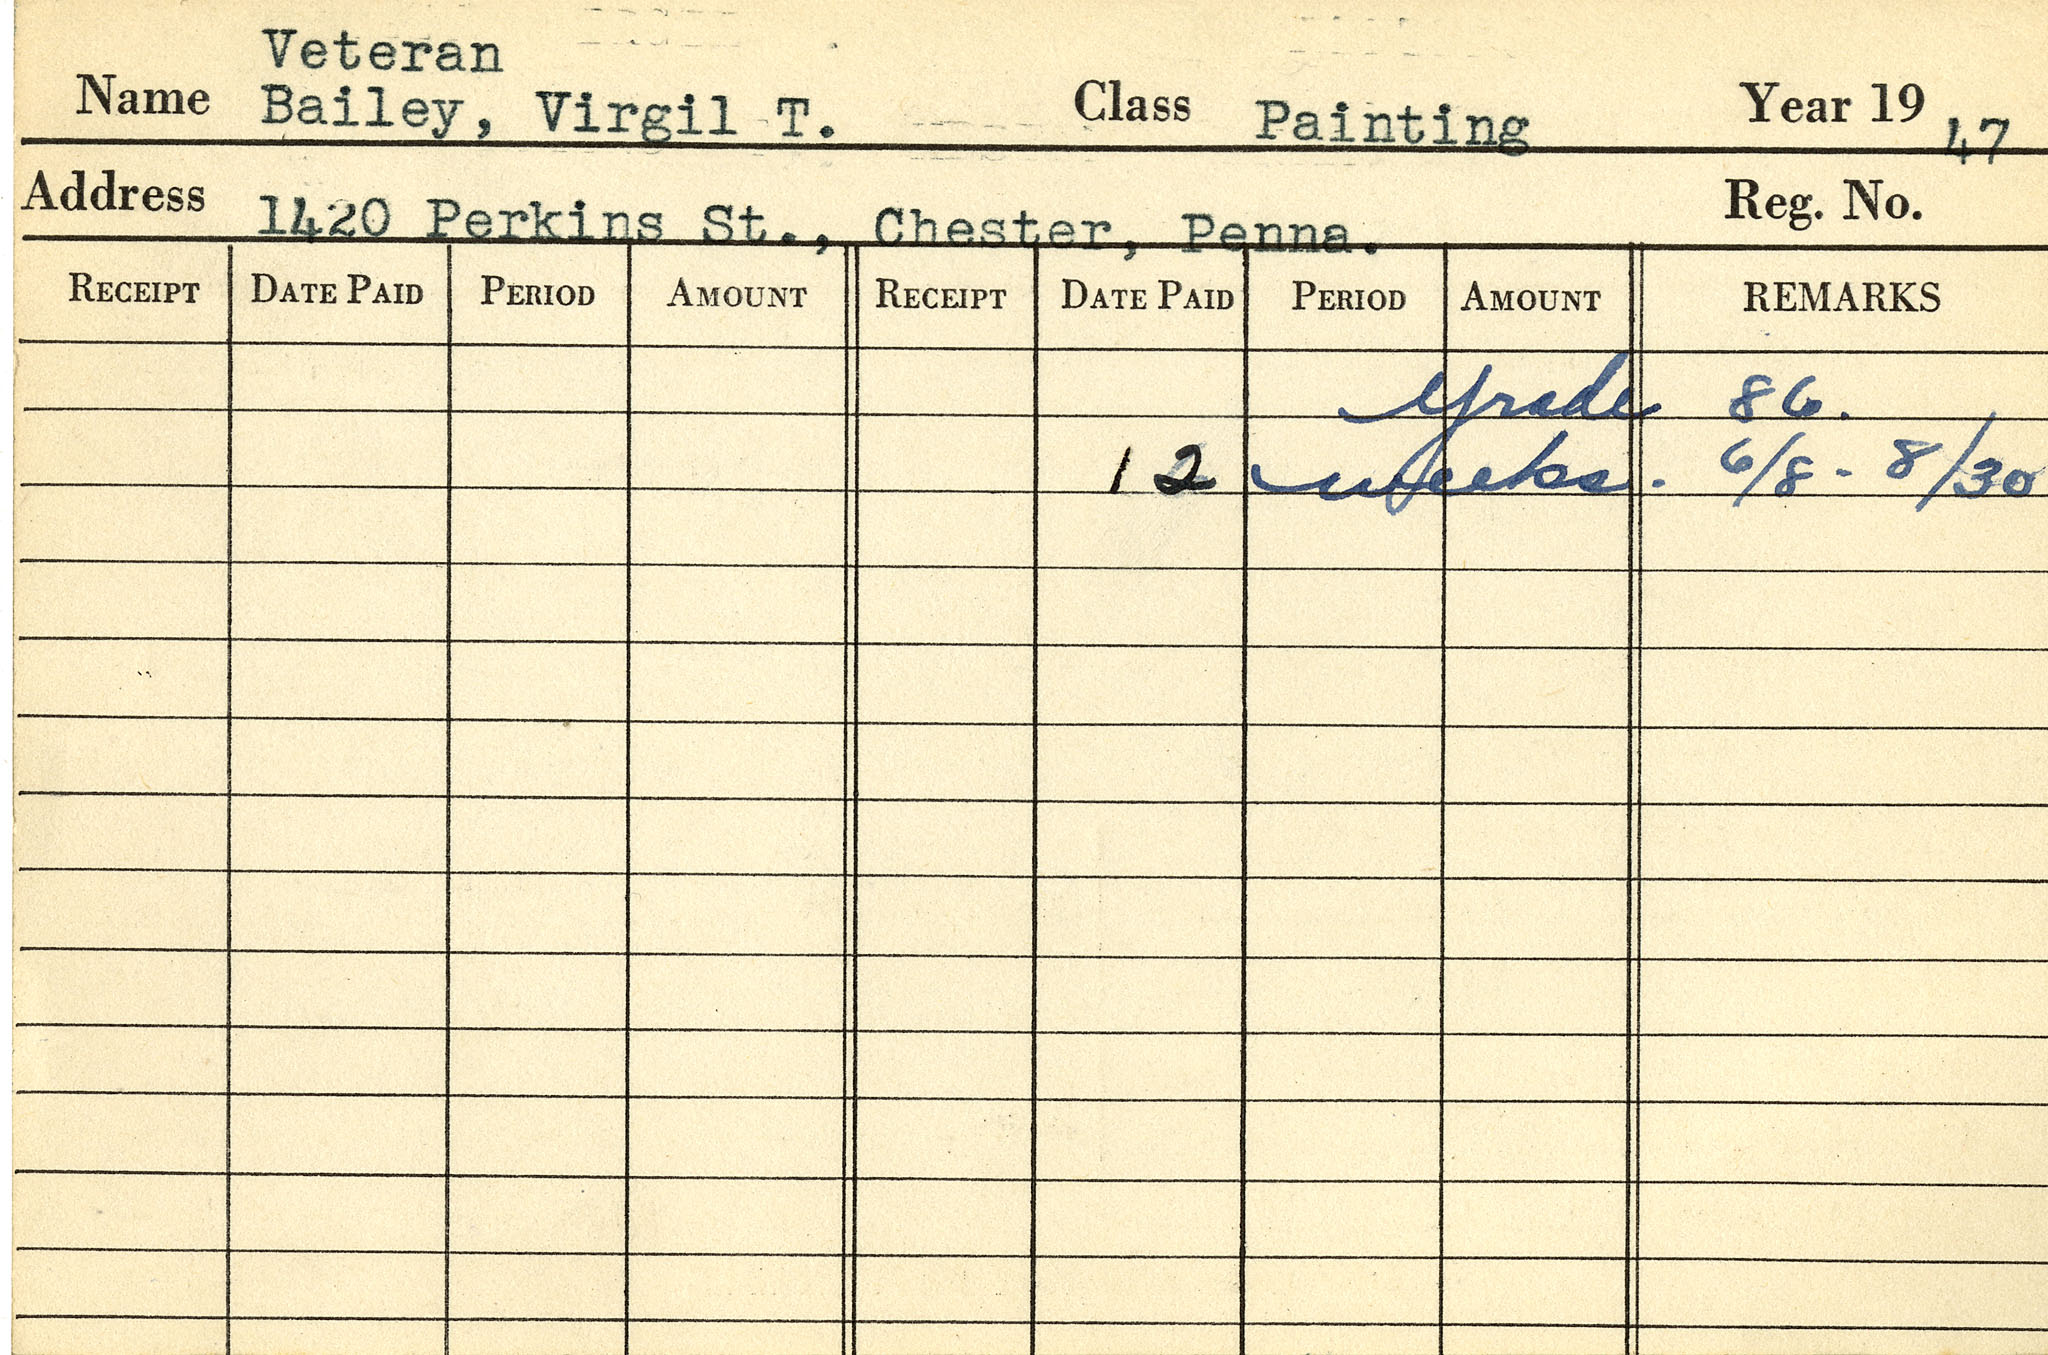 Veteran
Name Bailey, Virgil T. Class Painting Year 19 47
Address 1420 Perkins St., Chester, Penna. Reg. No.
RECEIPT DATE PAID PERIOD AMOUNT RECEIPT DATE PAID PERIOD AMOUNT REMARKS
Grade 86.
12 weeks. 6/8 - 8/30